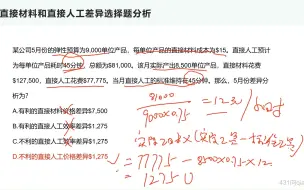 直接材料和直接人工差异选择题分析
某公司5月份的弹性预算为9,000单位产品，每单位产品的直接材料成本为$15。直接人工预计
为每单位产品耗时45分钟，总额为$81,000。该月实际产出8,500单位产品，直接材料花费
$127,500，直接人工花费$77,775，当月直接人工的标准维持在45分钟。那么，5月份差异分
析为？
A.有利的直接材料价格差异$7,500
B.有利的直接人工效率差异$1,275
C.不利的直接人工效率差异$1,275
D.不利的直接人工价格差异$1,275
81000
9000×0.75
=12元/小时
=77775-8500×0.75×12
=1275 U